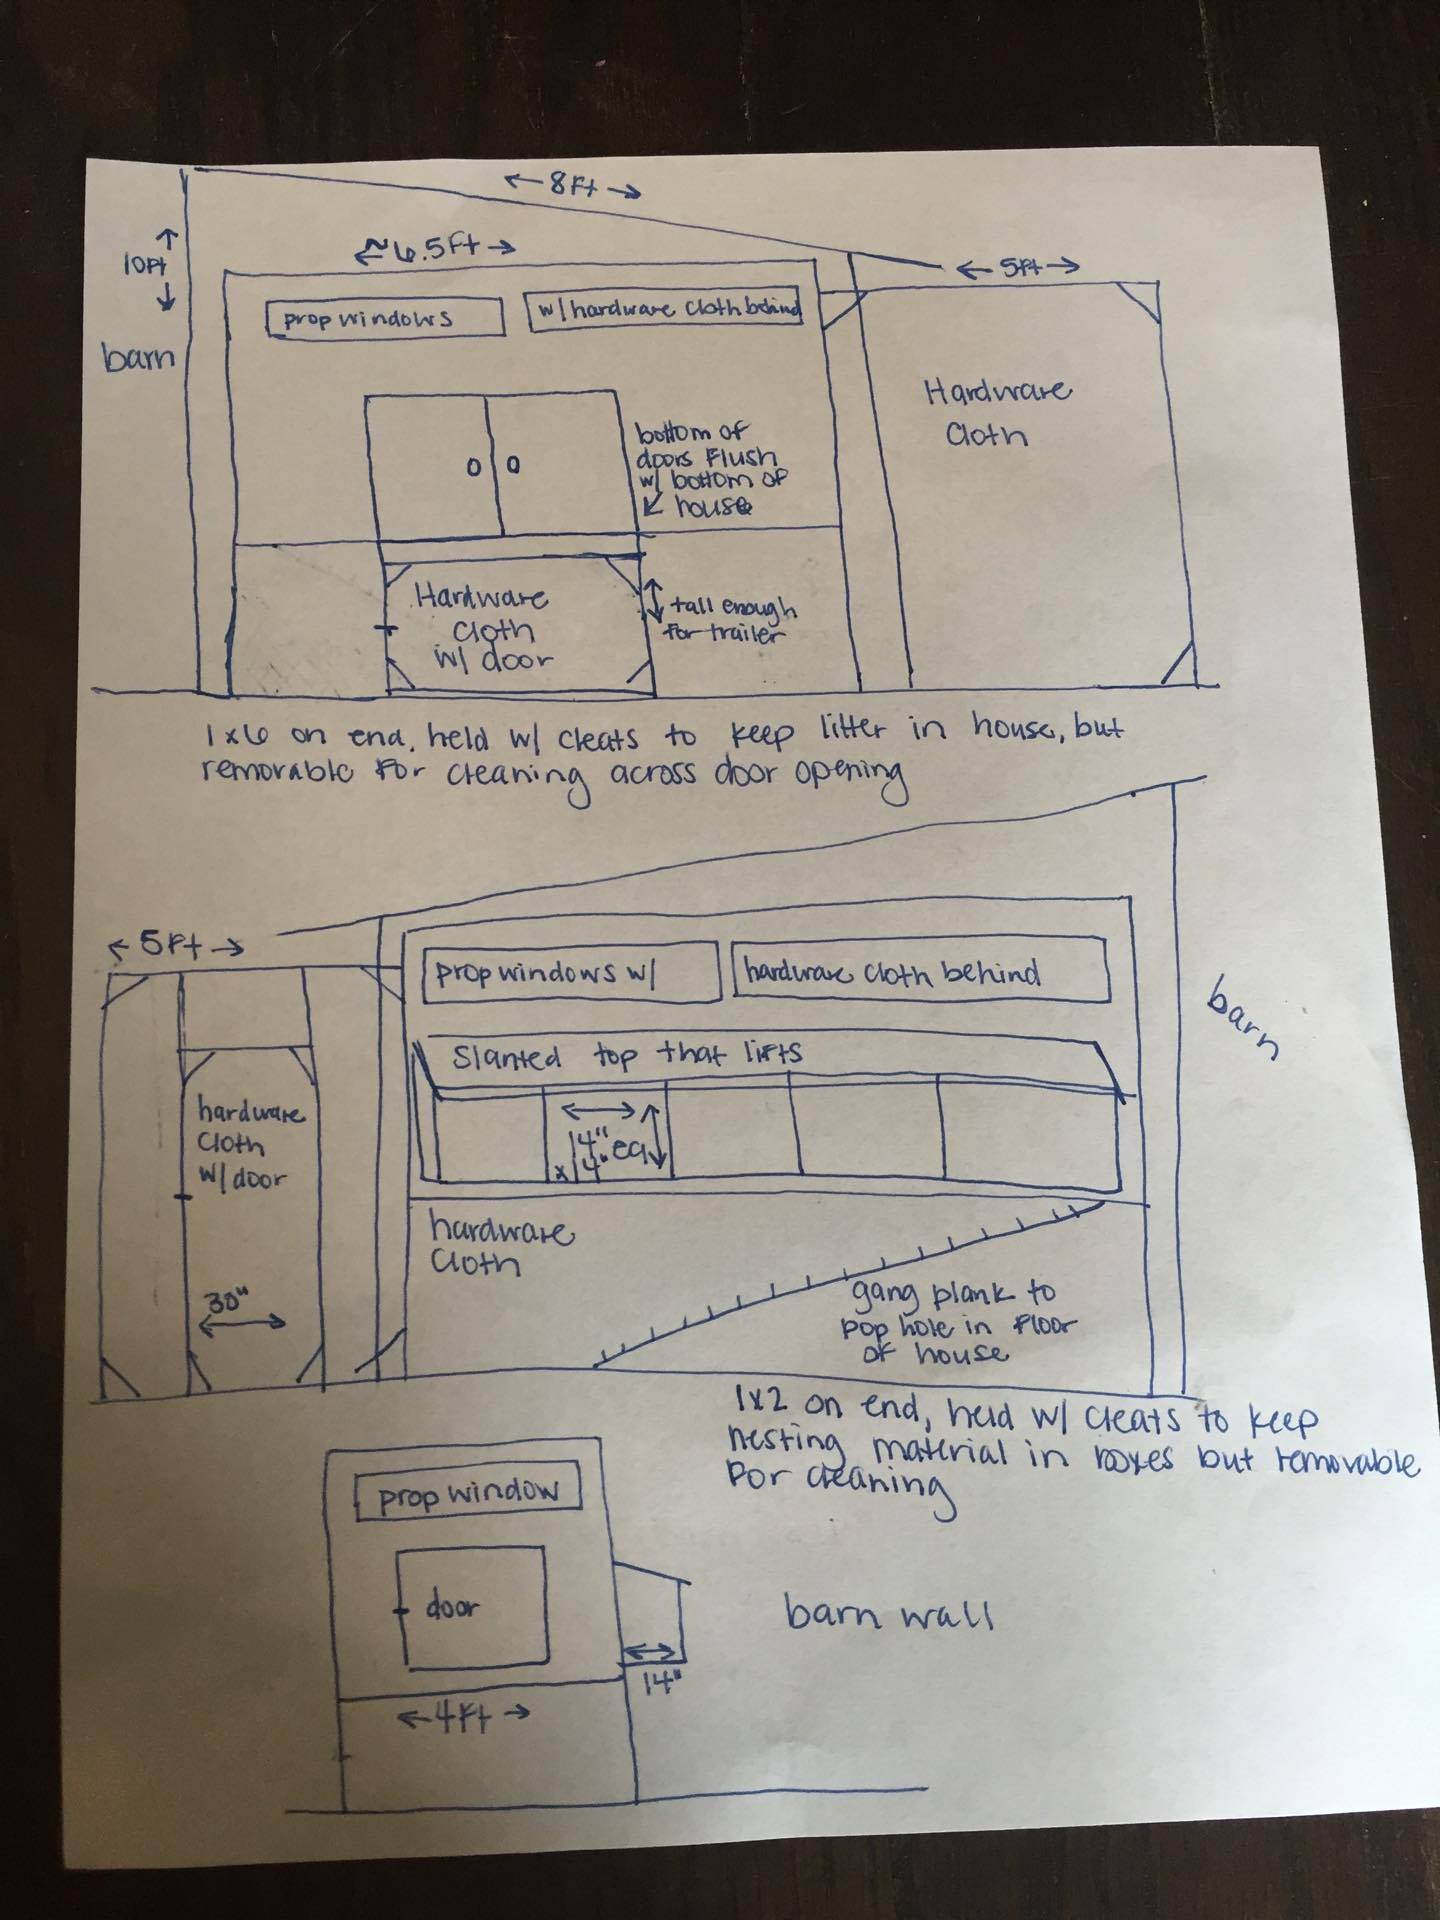 ← 8Ft →
10Ft
≈6.5Ft
← 5ft →
prop windows
w/ hardware cloth behind
barn
Hardware
Cloth
bottom of
doors Flush
w/ bottom of
house
Hardware
cloth
w/ door
tall enough
for trailer
1x6 on end, held w/ cleats to keep litter in house, but
removable for cleaning across door opening
← 5Ft →
prop windows w/
hardware cloth behind
barn
Slanted top that lifts
hardware
cloth
w/ door
14" ea
x 14"
30"
hardware
cloth
gang plank to
pop hole in floor
of house
1x2 on end, held w/ cleats to keep
nesting material in boxes but removable
for cleaning
prop window
door
barn wall
14"
← 4Ft →